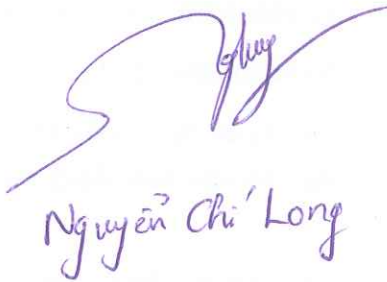 Nguyễn Chí Long